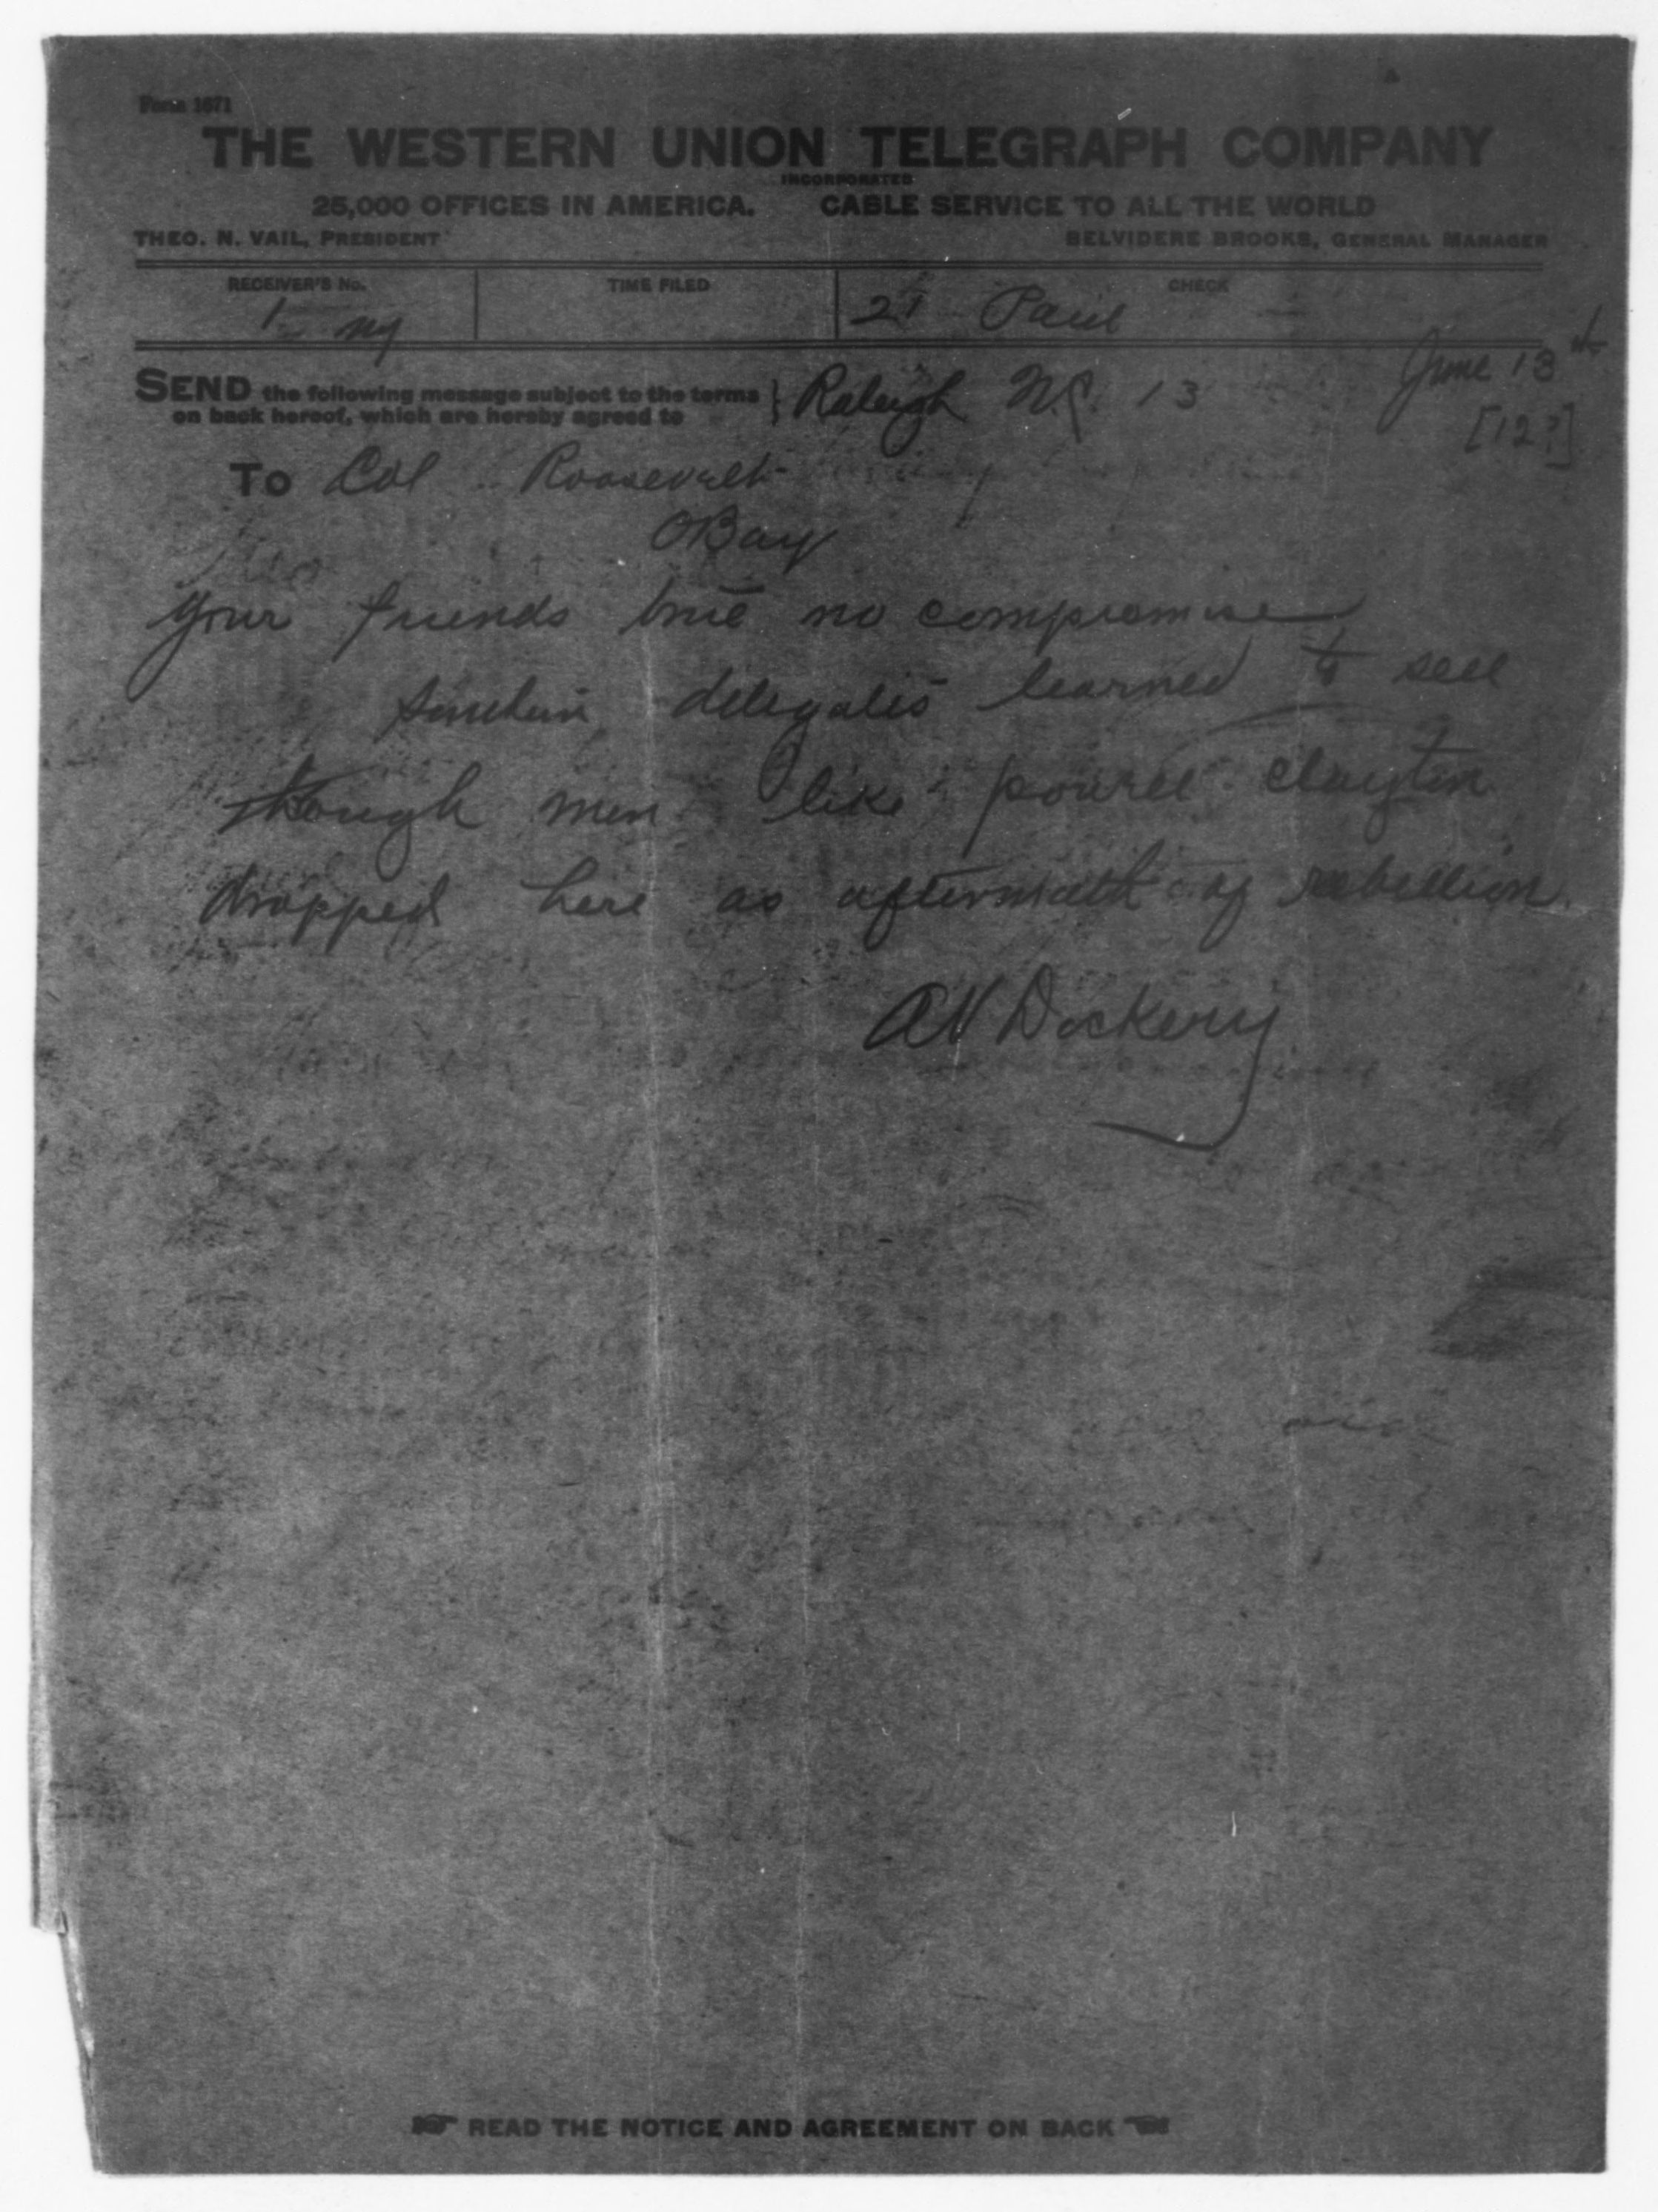 Form 1671
THE WESTERN UNION TELEGRAPH COMPANY
INCORPORATED
25,000 OFFICES IN AMERICA. CABLE SERVICE TO ALL THE WORLD
THEO. N. VAIL, PRESIDENT BELVIDERE BROOKS, GENERAL MANAGER
RECEIVER'S No. TIME FILED CHECK
1 ny 21 Paid
June 13th
SEND the following message subject to the terms
on back hereof, which are hereby agreed to
Raleigh N.C. 13
[12?]
To Col Roosevelt
OBay
Your friends true no compromise
delegates learned to sell
through men like powell clayton
dropped here as aftermath of rebellion.
AV Dockery
READ THE NOTICE AND AGREEMENT ON BACK